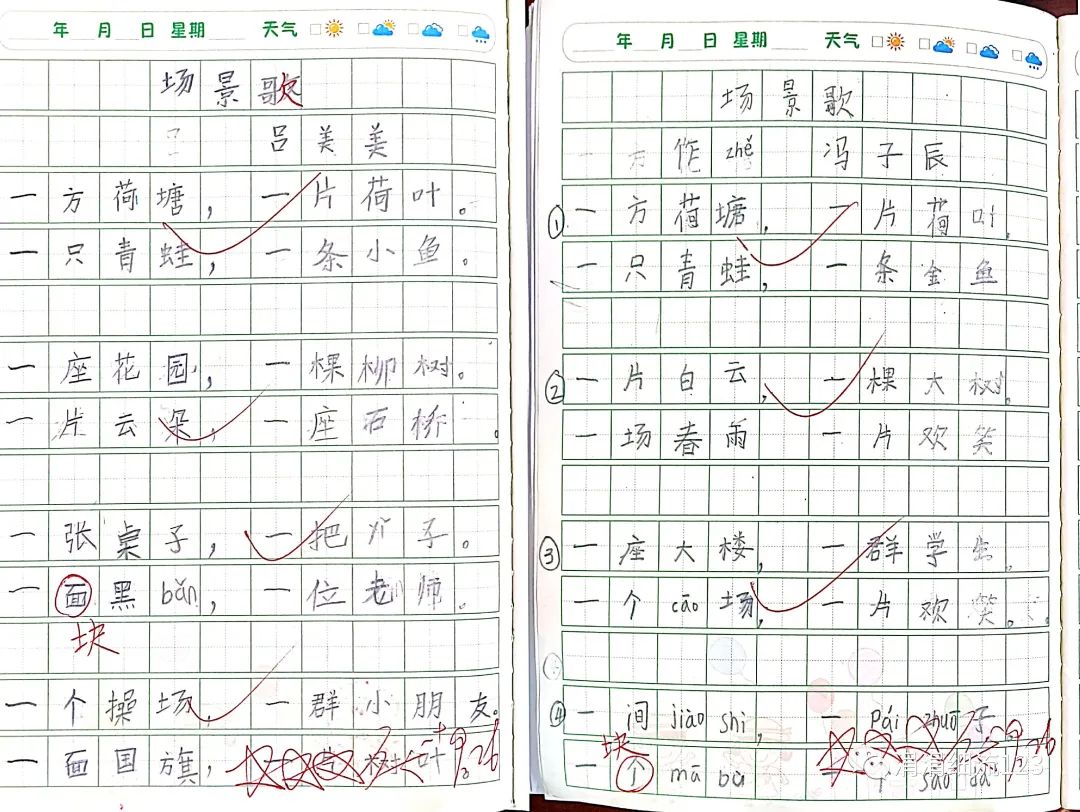 年 月 日 星期 天气
场景歌
吕美美
一方荷塘，一片荷叶。
一只青蛙，一条小鱼。
一座花园，一棵柳树。
一片云朵，一座石桥。
一张桌子，一把 子。
一面黑bǎn，一位老师。
块
一个操场，一群小朋友。
一面国旗，一 树叶
9.26
年 月 日 星期 天气
场景歌
作zhě 冯子辰
①一方荷塘，一片荷叶。
一只青蛙，一条金鱼
②一片白云，一棵大树。
一场春雨 一片欢笑
③一座大楼，一群学生。
一个cāo场，一片欢笑。
④一间jiào shì，一pái zhuō子
块
9.26
一个mā bù